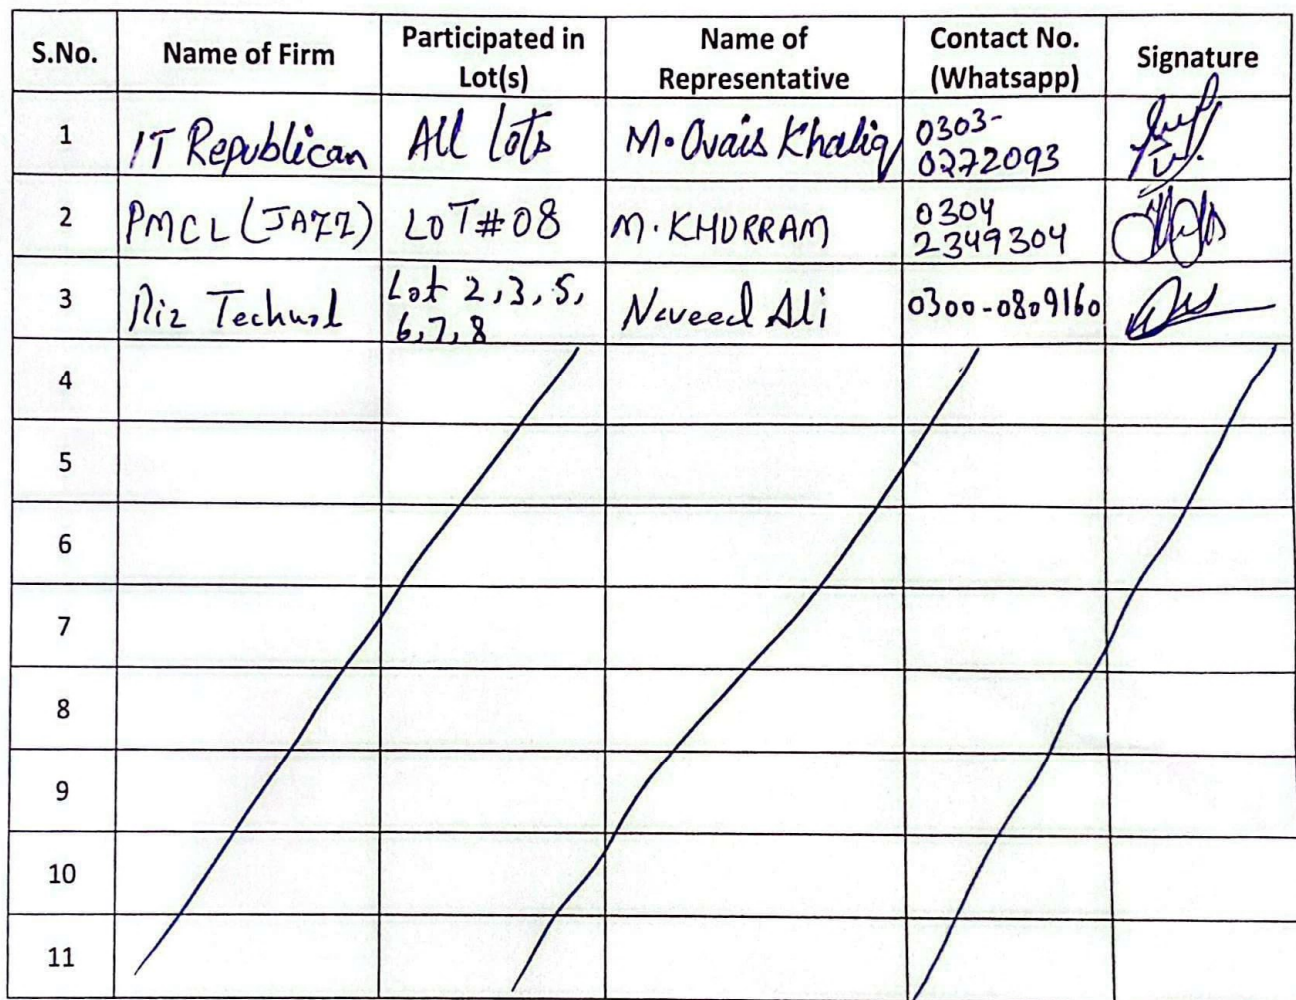 S.No. Name of Firm Participated in Lot(s) Name of Representative Contact No. (Whatsapp) Signature
1 IT Republican All lots M. Ovais Khaliq 0303-0272093
2 PMCL (JAZZ) LOT#08 M. KHURRAM 0304 2349304
3 Riz Technol Lot 2,3,5, 6,7,8 Naveed Ali 0300-0809160
4
5
6
7
8
9
10
11